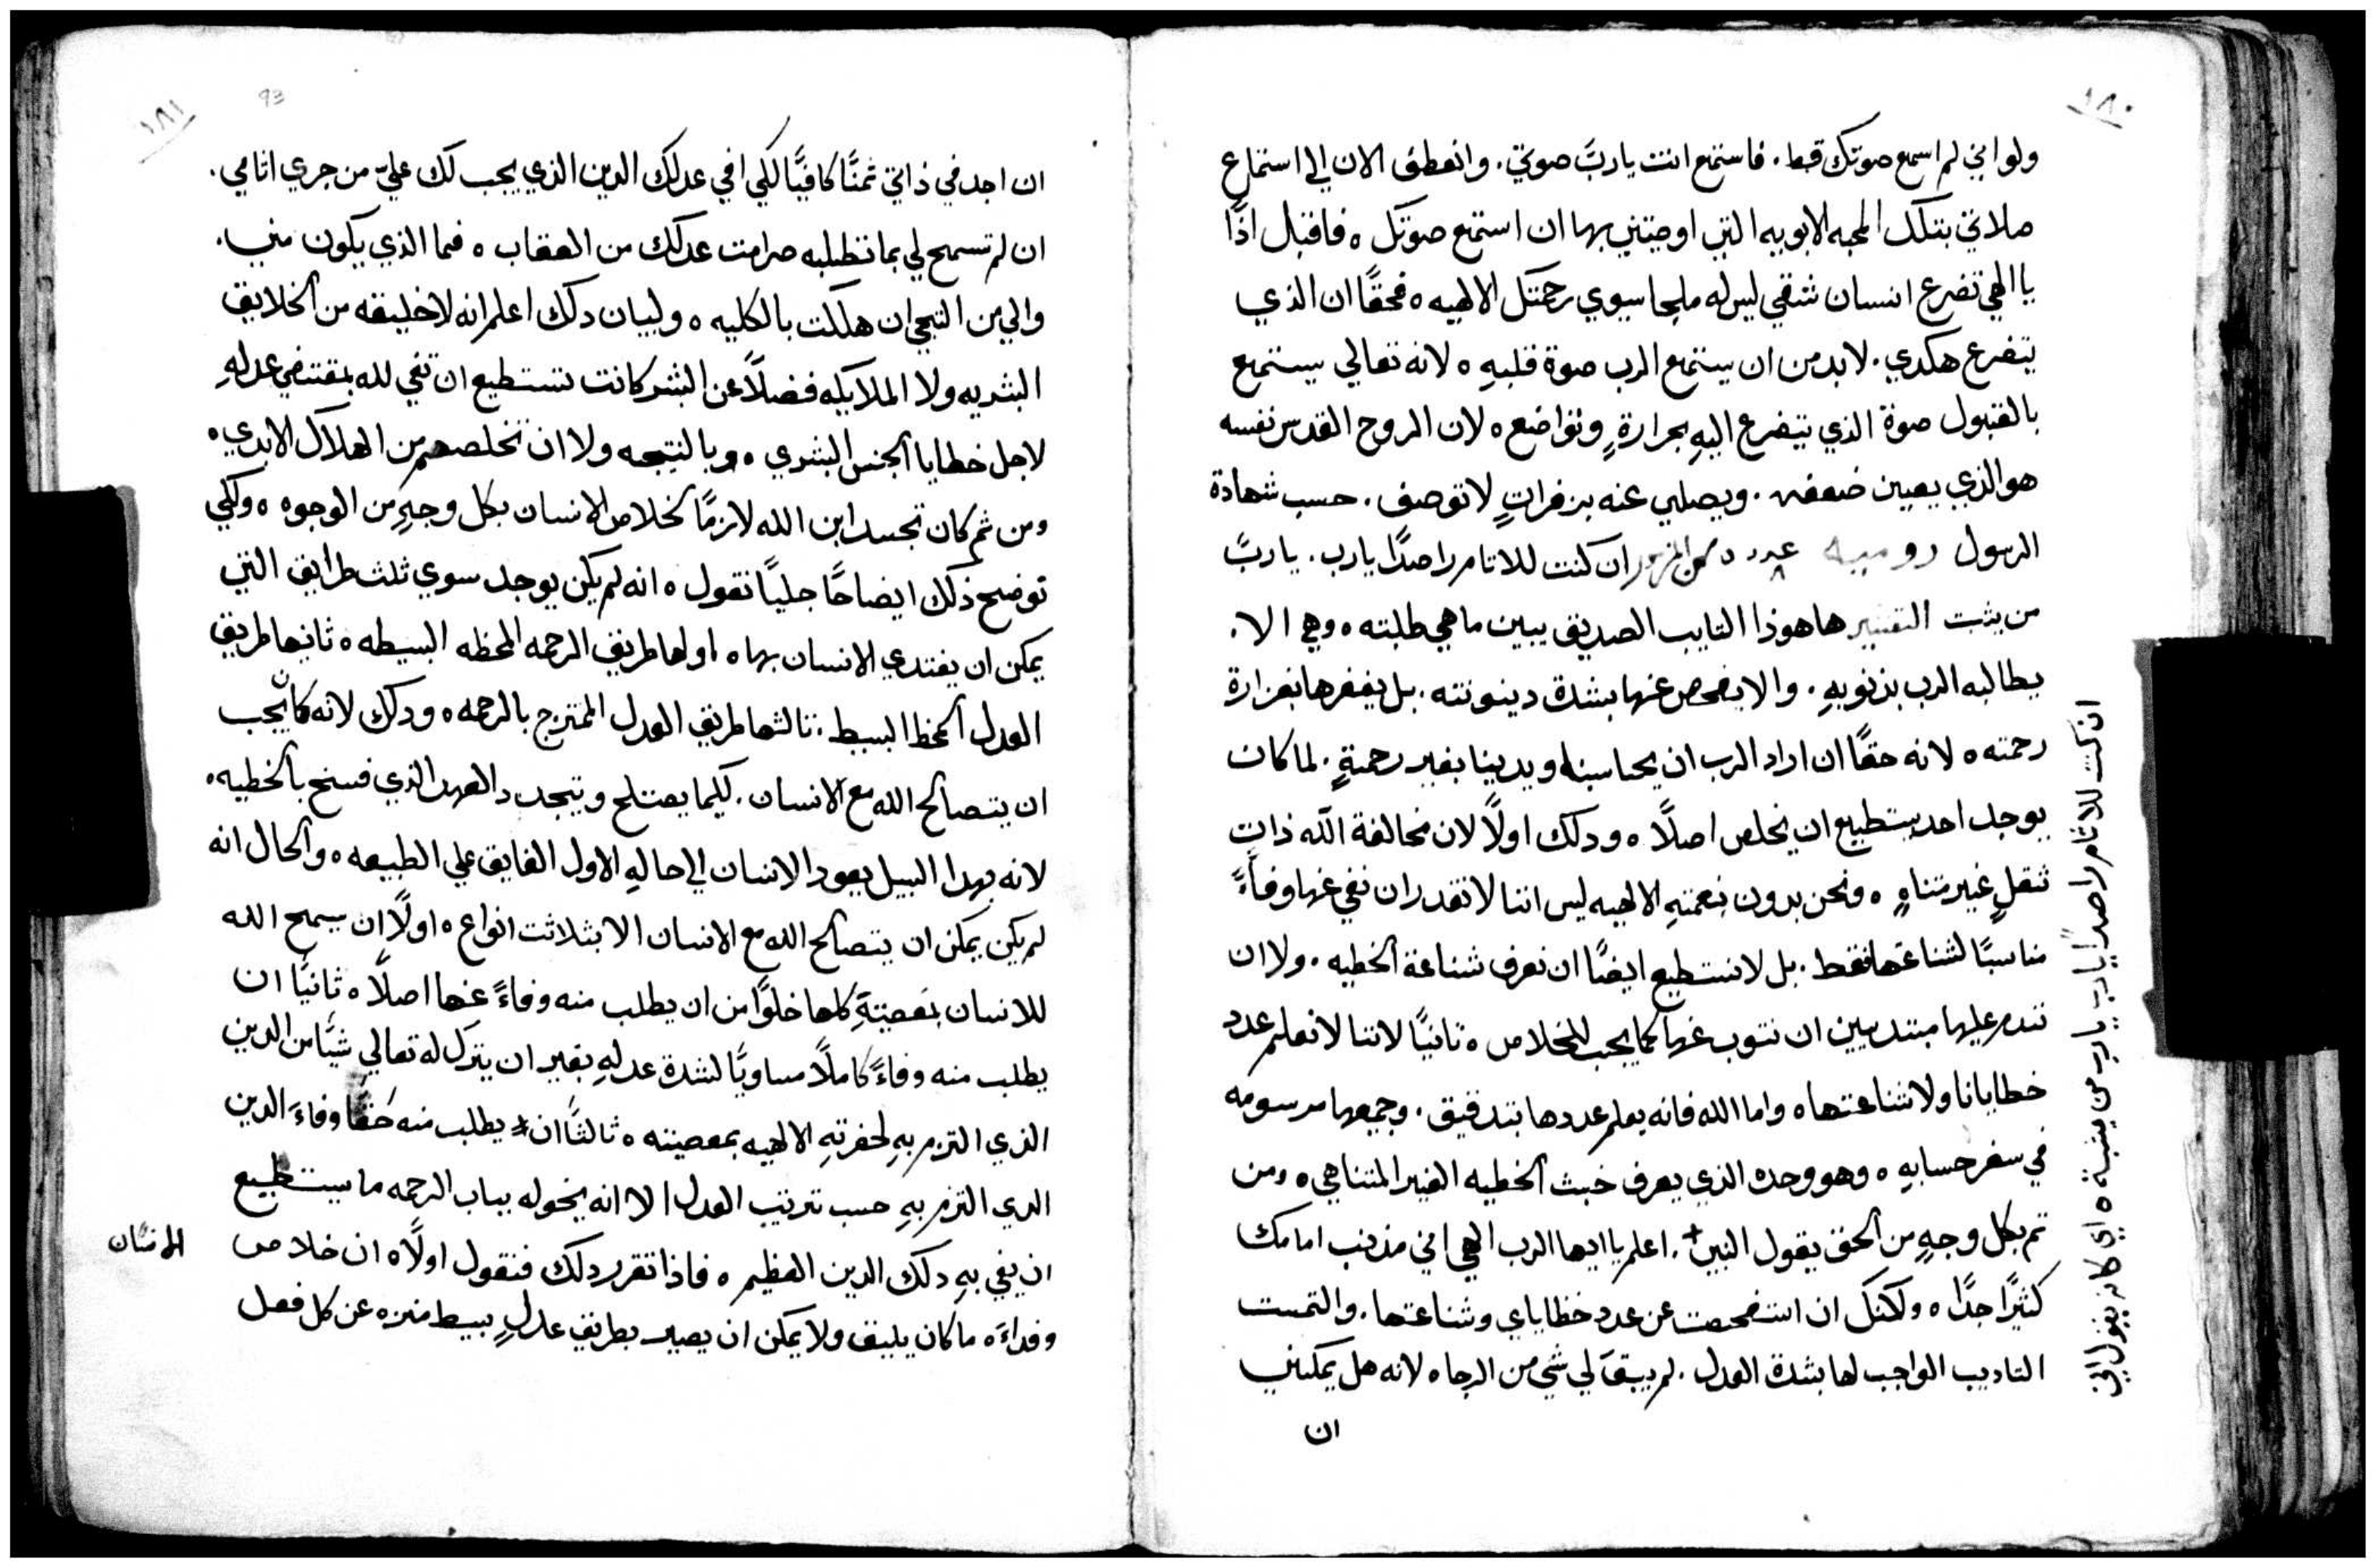 ١٨٠
ولو اني لم اسمع صوتك قط. فاستمع انت يا ربَّ صوتي. وانعطف الان الي استماع
صلاتي بتلك المحبه الابويه التي اوصيتني بها ان استمع صوتك ه فاقبل اذًا
يا الهي تضرع انسان شقي ليس له ملجا سوي رحمتك الالهيه ه فحقًا ان الذي
يتضرع هكدي. لا بد من ان يستمع الرب صوة قلبهِ ه لانه تعالي يستمع
بالقبول صوة الذي يتضرع اليهِ بحرارةٍ وتواضع ه لان الروح القدس نفسه
هو الذي يعين ضعفه. ويصلي عنه بزفراتٍ لا توصف. حسب شهادة
الرسول روميه ٨ عدد ان كنت للاثام راصدًا يارب. يا ربَّ
من يثبت التفسير ها هوذا التايب الصديق يبين ما هي طلبته ه وهي الا.
يطالبه الرب بذنوبهِ. والا يفحص عنها بشدة دينونته. بل يغفرها بغزارة
رحمته ه لانه حقًا ان اراد الرب ان يحاسبنا ويديننا بغير رحمةٍ. لما كان
يوجد احد يستطيع ان يخلص اصلًا ه ودلك اولًا لان مخالفة الله ذات
ثقلٍ غير متناهٍ ه ونحن بدون نعمتهِ الالهيه ليس اننا لا نقدر ان نفي عنها وفاءً
مناسبًا لشناعتها فقط. بل لا نستطيع ايضًا ان نعرف شناعة الخطيه. ولا ان
نندم عليها مبتديين ان نتوب عنها كما يجب للخلاص ه ثانيًا لاننا لا نعلم عدد
خطايانا ولا شناعتها ه واما الله فانه يعلم عددها بتدقيق. وجميعها مرسومه
في سفر حسابهِ ه وهو وحده الذي يعرف خبث الخطيه الغير المتناهي ه ومن
ثم بكل وجهٍ من الحق يقول النبي. اعلم يا ايها الرب الهي اني مذنب امامك
كثيرًا جدًا ه ولكنك ان استفحصت عن عدد خطاياي وشناعتها. والتمست
التاديب الواجب لها بشدة العدل. لم يبقَ لي شي من الرجا ه لانه هل يمكنني
ان
ان كنت للاثام راصدًا يا رب يا رب من يثبت ه اي كانه يقول اني
١٨١
93
ان اجد في ذاتي ثمنًا كافيًا لكي افي عدلك الدين الذي يجب لك عليّ من جري اثامي.
ان لم تسمح لي بما تطلبه صرامت عدلك من العقاب ه فما الذي يكون مني.
والي من التجي ان هلكت بالكليه ه ولبيان دلك اعلم انه لا خليقه من الخلايق
البشريه ولا الملايكه فضلًا عن البشر كانت تستطيع ان تفي لله بمقتضي عدلهِ
لاجل خطايا الجنس البشري ه وبالنتيجه ولا ان تخلصهم من الهلاك الابدي ه
ومن ثم كان تجسد ابن الله لازمًا لخلاص الانسان بكل وجهٍ من الوجوه ه ولكي
توضح ذلك ايضاحًا جليًا نقول ه انه لم يكن يوجد سوي ثلث طرايق التي
يمكن ان يفتدي الانسان بها ه اولها طريق الرحمه المحظه البسيطه ه ثانيها طريق
العدل المحظ البسيط. ثالثها طريق العدل الممتزج بالرحمه ه ودلك لانه كان يجب
ان يتصالح الله مع الانسان. لكيما يصتلح ويتجدد العهد الذي فسخ بالخطيه ه
لانه بهدا السبيل يعود الانسان الي حالهِ الاول الفايق علي الطبيعه ه والحال انه
لم يكن يمكن ان يتصالح الله مع الانسان الا بثلاثت انواع ه اولًا ان يسمح الله
للانسان بمعصيتهِ كلها خلوًا من ان يطلب منه وفاءً عنها اصلًا ه ثانيًا ان
يطلب منه وفاءً كاملًا مساويًا لشدة عدلهِ بغير ان يترك له تعالي شيًا من الدين
الذي التزم بهِ لحضرتهِ الالهيه بمعصيته ه ثالثًا ان يطلب منه حقًا وفاءَ الدين
الدي التزم بهِ حسب ترتيب العدل الا انه يخوله بباب الرحمه ما يستطيع
ان يفي بهِ دلك الدين العظيم ه فاذا تقرر دلك فنقول اولًا ه ان خلاص
وفداءَه ما كان يليق ولا يمكن ان يصير بطريق عدلٍ بسيط منزه عن كل فضل
الانسان